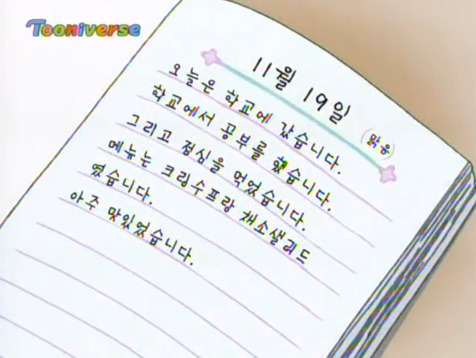 Tooniverse
11월 19일
(맑음)
오늘은 학교에 갔습니다.
학교에서 공부를 했습니다.
그리고 점심을 먹었습니다.
메뉴는 크림수프랑 채소샐러드
였습니다.
아주 맛있었습니다.